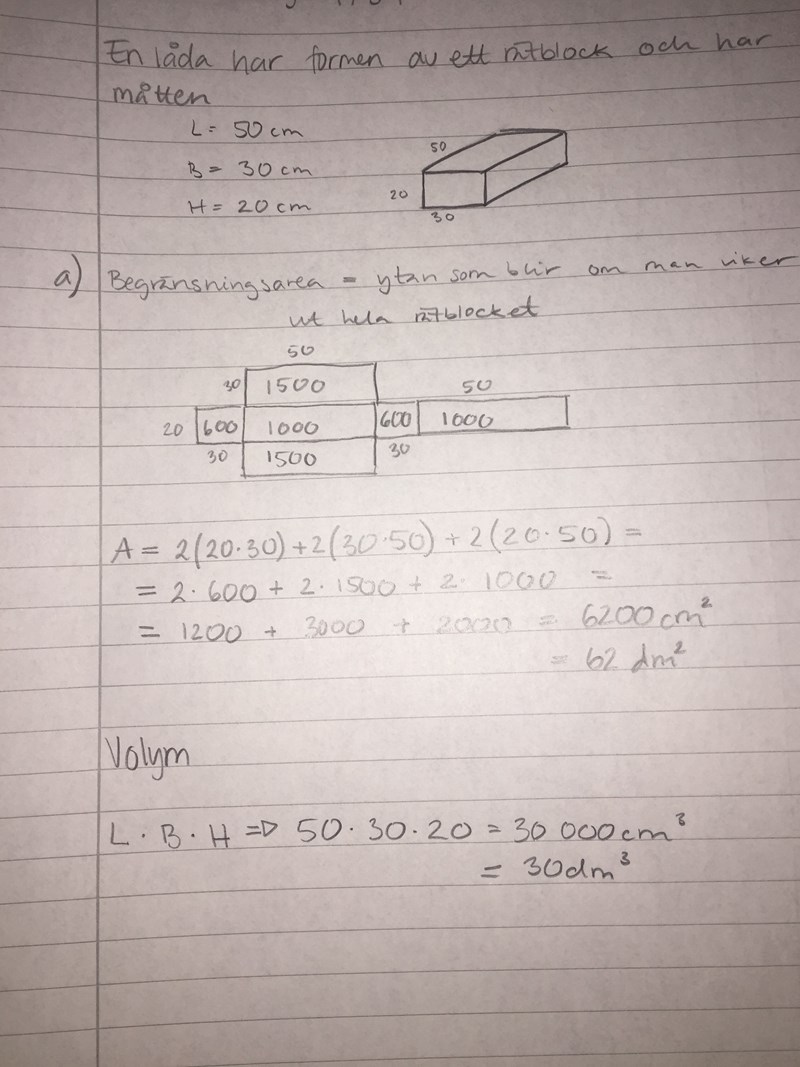 En låda har formen av ett rätblock och har
måtten
L = 50 cm
B = 30 cm
H = 20 cm
50
20
30
a) Begränsningsarea = ytan som blir om man viker
ut hela rätblocket
50
30 1500 50
20 600 1000 600 1000
30 1500 30
A = 2(20·30)+2(30·50)+2(20·50) =
= 2·600 + 2·1500 + 2·1000 =
= 1200 + 3000 + 2000 = 6200 cm²
= 62 dm²
Volym
L · B · H => 50·30·20 = 30 000 cm³
= 30 dm³